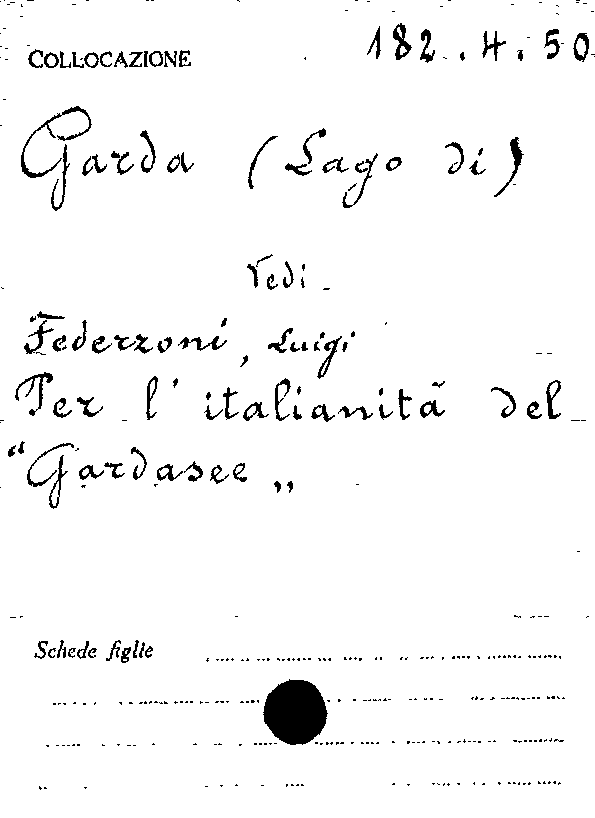 COLLOCAZIONE 182.4.50
Garda (Lago di)
Vedi
Federzoni, Luigi
Per l'italianità del
“Gardasee„
Schede figlie